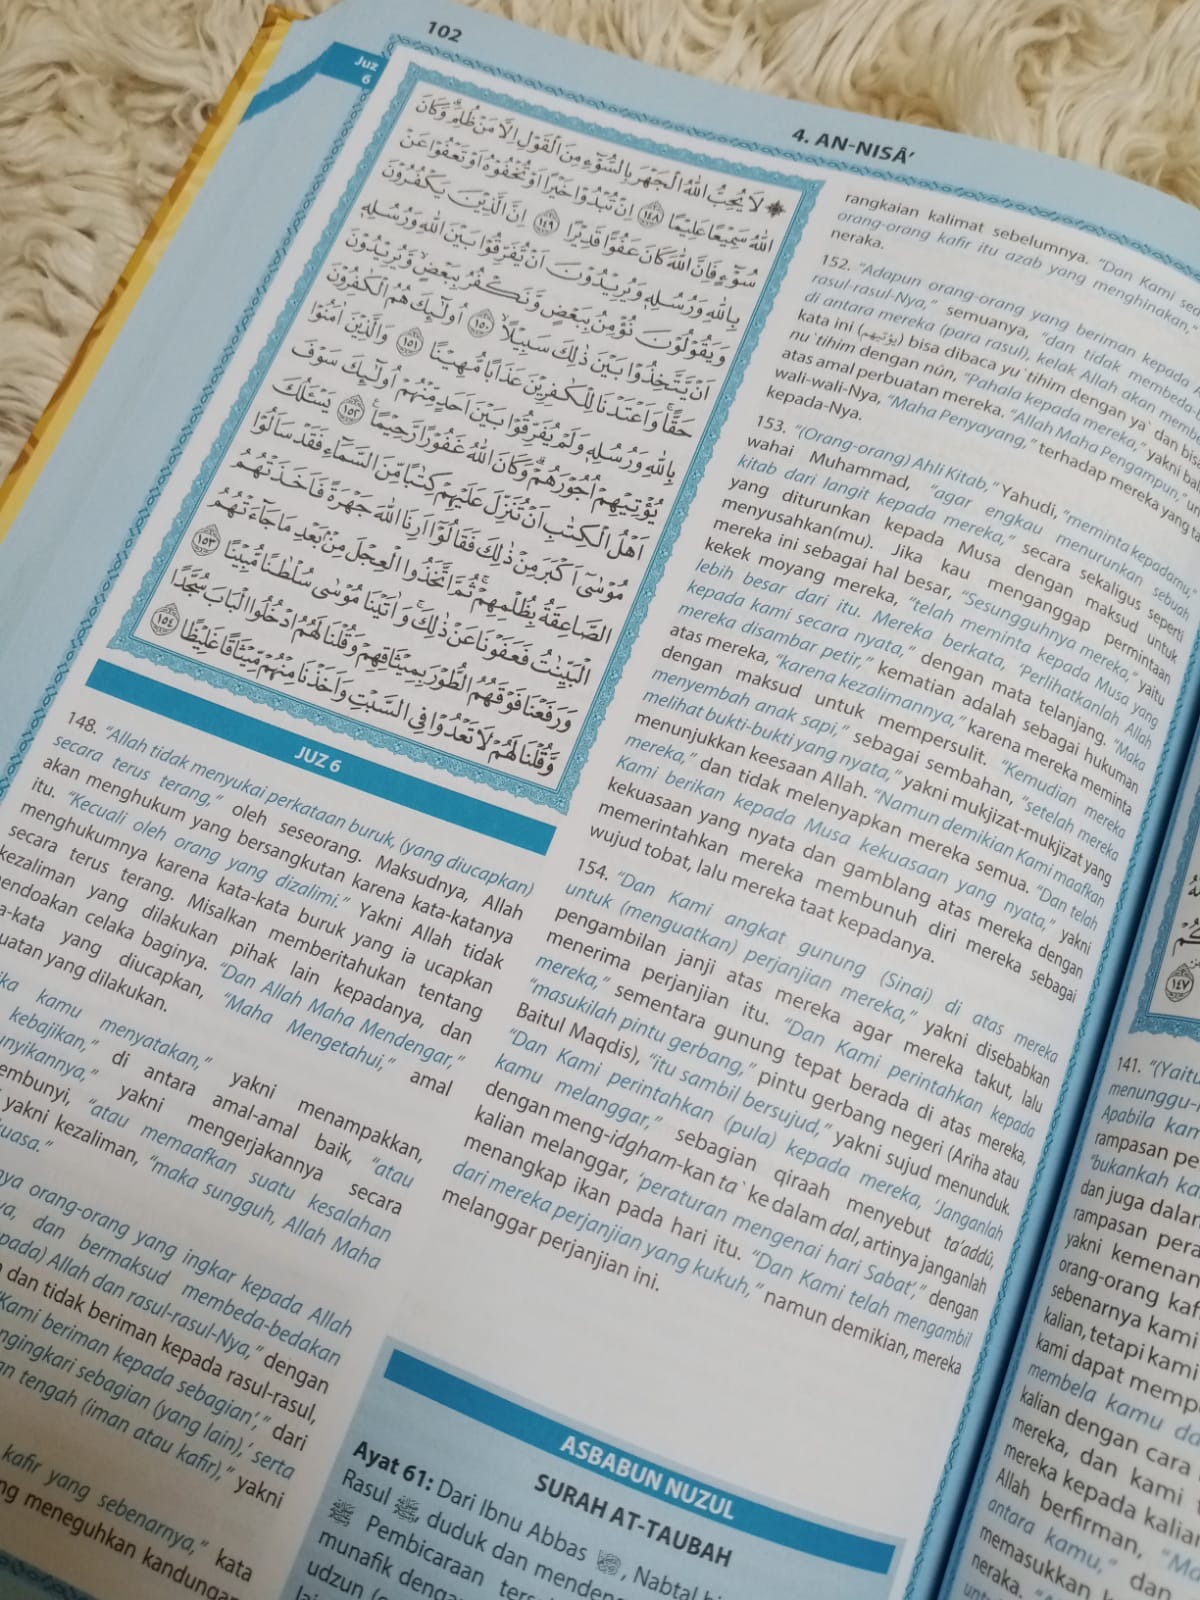 102
Juz
6
4. AN-NISÂ'
لَا يُحِبُّ اللّٰهُ الْجَهْرَ بِالسُّوْۤءِ مِنَ الْقَوْلِ اِلَّا مَنْ ظُلِمَ ۗ وَكَانَ
اللّٰهُ سَمِيْعًا عَلِيْمًا ١٤٨ اِنْ تُبْدُوْا خَيْرًا اَوْ تُخْفُوْهُ اَوْ تَعْفُوْا عَنْ
سُوْۤءٍ فَاِنَّ اللّٰهَ كَانَ عَفُوًّا قَدِيْرًا ١٤٩ اِنَّ الَّذِيْنَ يَكْفُرُوْنَ
بِاللّٰهِ وَرُسُلِهٖ وَيُرِيْدُوْنَ اَنْ يُّفَرِّقُوْا بَيْنَ اللّٰهِ وَرُسُلِهٖ
وَيَقُوْلُوْنَ نُؤْمِنُ بِبَعْضٍ وَّنَكْفُرُ بِبَعْضٍۙ وَّيُرِيْدُوْنَ
اَنْ يَّتَّخِذُوْا بَيْنَ ذٰلِكَ سَبِيْلًاۙ ١٥٠ اُولٰۤىِٕكَ هُمُ الْكٰفِرُوْنَ
حَقًّاۚ وَاَعْتَدْنَا لِلْكٰفِرِيْنَ عَذَابًا مُّهِيْنًا ١٥١ وَالَّذِيْنَ اٰمَنُوْا
بِاللّٰهِ وَرُسُلِهٖ وَلَمْ يُفَرِّقُوْا بَيْنَ اَحَدٍ مِّنْهُمْ اُولٰۤىِٕكَ سَوْفَ
يُؤْتِيْهِمْ اُجُوْرَهُمْ ۗ وَكَانَ اللّٰهُ غَفُوْرًا رَّحِيْمًا ١٥٢ يَسْـَٔلُكَ
اَهْلُ الْكِتٰبِ اَنْ تُنَزِّلَ عَلَيْهِمْ كِتٰبًا مِّنَ السَّمَاۤءِ فَقَدْ سَاَلُوْا
مُوْسٰٓى اَكْبَرَ مِنْ ذٰلِكَ فَقَالُوْٓا اَرِنَا اللّٰهَ جَهْرَةً فَاَخَذَتْهُمُ
الصَّاعِقَةُ بِظُلْمِهِمْۚ ثُمَّ اتَّخَذُوا الْعِجْلَ مِنْۢ بَعْدِ مَا جَاۤءَتْهُمُ
الْبَيِّنٰتُ فَعَفَوْنَا عَنْ ذٰلِكَ ۚ وَاٰتَيْنَا مُوْسٰى سُلْطٰنًا مُّبِيْنًا ١٥٣
وَرَفَعْنَا فَوْقَهُمُ الطُّوْرَ بِمِيْثَاقِهِمْ وَقُلْنَا لَهُمُ ادْخُلُوا الْبَابَ سُجَّدًا
وَّقُلْنَا لَهُمْ لَا تَعْدُوْا فِى السَّبْتِ وَاَخَذْنَا مِنْهُمْ مِّيْثَاقًا غَلِيْظًا ١٥٤
JUZ 6
148. "Allah tidak menyukai perkataan buruk, (yang diucapkan)
secara terus terang," oleh seseorang. Maksudnya, Allah
akan menghukum yang bersangkutan karena kata-katanya
itu. "Kecuali oleh orang yang dizalimi." Yakni Allah tidak
menghukumnya karena kata-kata buruk yang ia ucapkan
secara terus terang. Misalkan memberitahukan tentang
kezaliman yang dilakukan pihak lain kepadanya, dan
mendoakan celaka baginya. "Dan Allah Maha Mendengar,"
yang diucapkan, "Maha Mengetahui," amal
yang dilakukan.
kamu menyatakan," yakni menampakkan,
kebajikan," di antara amal-amal baik, "atau
yakni mengerjakannya secara
"atau memaafkan suatu kesalahan
yakni kezaliman, "maka sungguh, Allah Maha
orang-orang yang ingkar kepada Allah
dan bermaksud membeda-bedakan
Allah dan rasul-rasul-Nya," dengan
dan tidak beriman kepada rasul-rasul,
Kami beriman kepada sebagian'," dari
sebagian (yang lain),' serta
tengah (iman atau kafir)," yakni
kafir yang sebenarnya," kata
meneguhkan kandungan
rangkaian kalimat sebelumnya. "Dan Kami
orang-orang kafir itu azab yang menghinakan,"
neraka.
152. "Adapun orang-orang yang beriman kepada
rasul-rasul-Nya," semuanya, "dan tidak membeda
di antara mereka (para rasul), kelak Allah akan
kata ini (يؤتيهم) bisa dibaca yu`tihim dengan ya` dan bisa
nu`tihim dengan nûn, "Pahala kepada mereka," yakni
atas amal perbuatan mereka. "Allah Maha Pengampun,"
wali-wali-Nya, "Maha Penyayang," terhadap mereka yang
kepada-Nya.
153. "(Orang-orang) Ahli Kitab," Yahudi, "meminta kepadamu,"
wahai Muhammad, "agar engkau menurunkan sebuah
kitab dari langit kepada mereka," secara sekaligus seperti
yang diturunkan kepada Musa dengan maksud untuk
menyusahkan(mu). Jika kau menganggap permintaan
mereka ini sebagai hal besar, "Sesungguhnya mereka," yaitu
kekek moyang mereka, "telah meminta kepada Musa yang
lebih besar dari itu. Mereka berkata, 'Perlihatkanlah Allah
kepada kami secara nyata,'" dengan mata telanjang. "Maka
mereka disambar petir," kematian adalah sebagai hukuman
atas mereka, "karena kezalimannya," karena mereka meminta
dengan maksud untuk mempersulit. "Kemudian mereka
menyembah anak sapi," sebagai sembahan, "setelah mereka
melihat bukti-bukti yang nyata," yakni mukjizat-mukjizat yang
menunjukkan keesaan Allah. "Namun demikian Kami maafkan
mereka," dan tidak melenyapkan mereka semua. "Dan telah
Kami berikan kepada Musa kekuasaan yang nyata," yakni
kekuasaan yang nyata dan gamblang atas mereka dengan
memerintahkan mereka membunuh diri mereka sebagai
wujud tobat, lalu mereka taat kepadanya.
154. "Dan Kami angkat gunung (Sinai) di atas mereka
untuk (menguatkan) perjanjian mereka," yakni disebabkan
pengambilan janji atas mereka agar mereka takut, lalu
menerima perjanjian itu. "Dan Kami perintahkan kepada
mereka," sementara gunung tepat berada di atas mereka,
"masukilah pintu gerbang," pintu gerbang negeri (Ariha atau
Baitul Maqdis), "itu sambil bersujud," yakni sujud menunduk.
"Dan Kami perintahkan (pula) kepada mereka, 'Janganlah
kamu melanggar," sebagian qiraah menyebut ta'addû,
dengan meng-idgham-kan ta` ke dalam dal, artinya janganlah
kalian melanggar, 'peraturan mengenai hari Sabat'," dengan
menangkap ikan pada hari itu. "Dan Kami telah mengambil
dari mereka perjanjian yang kukuh," namun demikian, mereka
melanggar perjanjian ini.
ASBABUN NUZUL
SURAH AT-TAUBAH
Ayat 61: Dari Ibnu Abbas , Nabtal
Rasul ﷺ duduk dan
ﷺ Pembicaraan
munafik
udzun
١٤٧
141. "(Yaitu
menunggu-
Apabila kam
rampasan pe
"bukankah ka
dan juga dalar
rampasan pera
yakni kemenan
orang-orang kaf
sebenarnya kami
kalian, tetapi kami
kami dapat memp
membela kamu da
kalian dengan cara
mereka, dan kami
mereka kepada kalian
Allah berfirman, "Ma
antara kamu," dan
memasukkan
neraka.